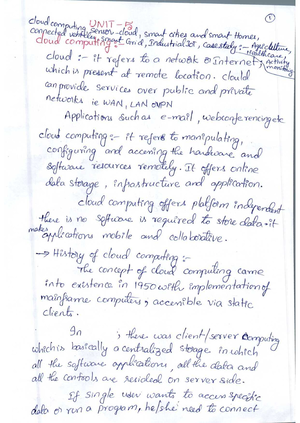 UNIT-5
cloud computing, sensor-cloud, smart cities and smart Homes,
connected vehicles, smart Grid, Industrial IoT, case study :- Agriculture,
Healthcare,
Activity
monitoring
cloud computing :-
cloud :- it refers to a network or Internet,
which is present at remote location. Cloud
can provide services over public and private
networks ie WAN, LAN or VPN
Applications such as e-mail, web conferencing etc
cloud computing :- it refers to manipulating,
configuring and accessing the hardware and
software resources remotely. It offers online
data storage, infrastructure and application.
cloud computing offers platform independent
there is no software is required to store data. it
makes applications mobile and collaborative.
→ History of cloud computing :-
The concept of cloud computing came
into existence in 1950 with implementation of
mainframe computers, accessible via static
clients.
In ; there was client/server computing
which is basically a centralized storage in which
all the software applications, all the data and
all the controls are resided on server side.
If single user wants to access specific
data or run a program, he/she need to connect